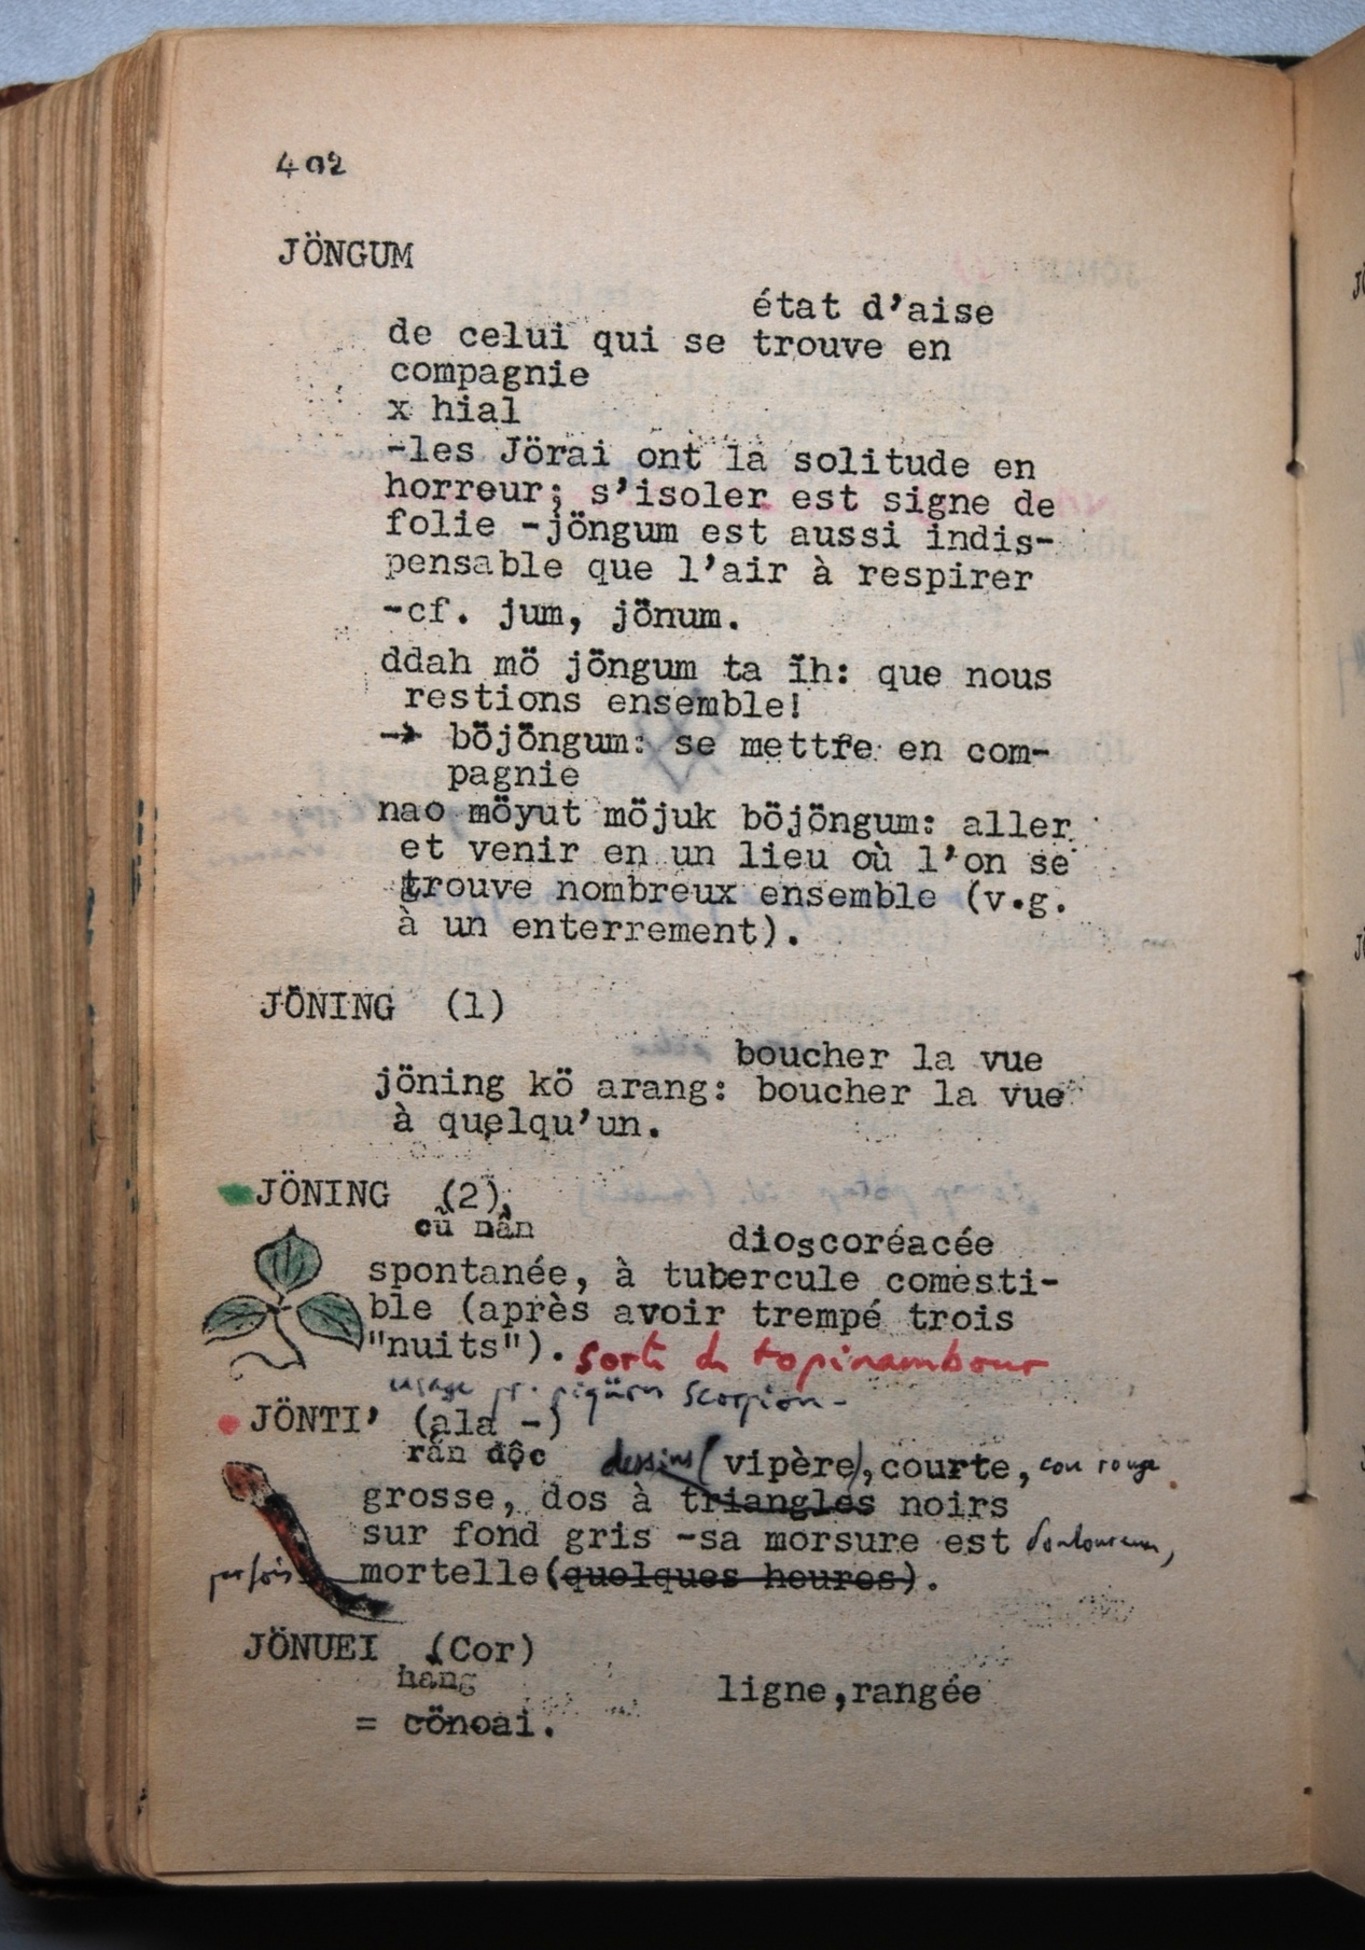 402
JÖNGUM
état d'aise
de celui qui se trouve en
compagnie
x hial
-les Jörai ont la solitude en
horreur; s'isoler est signe de
folie -jöngum est aussi indis-
pensable que l'air à respirer
-cf. jum, jönum.
ddah mö jöngum ta ĭh: que nous
restions ensemble!
→ böjöngum: se mettre en com-
pagnie
nao möyut möjuk böjöngum: aller
et venir en un lieu où l'on se
trouve nombreux ensemble (v.g.
à un enterrement).
JÖNING (1)
boucher la vue
jöning kö arang: boucher la vue
à quelqu'un.
JÖNING (2)
củ nần
dioscoréacée
spontanée, à tubercule comesti-
ble (après avoir trempé trois
"nuits"). sorte de topinambour
usage pr. piqûres scorpion-
JÖNTI' (ala -)
rắn độc
dessins (vipère), courte, cou rouge
grosse, dos à triangles noirs
sur fond gris -sa morsure est douloureuse,
parfois mortelle (quelques heures).
JÖNUEI (Cor)
hàng
ligne, rangée
= cönoai.